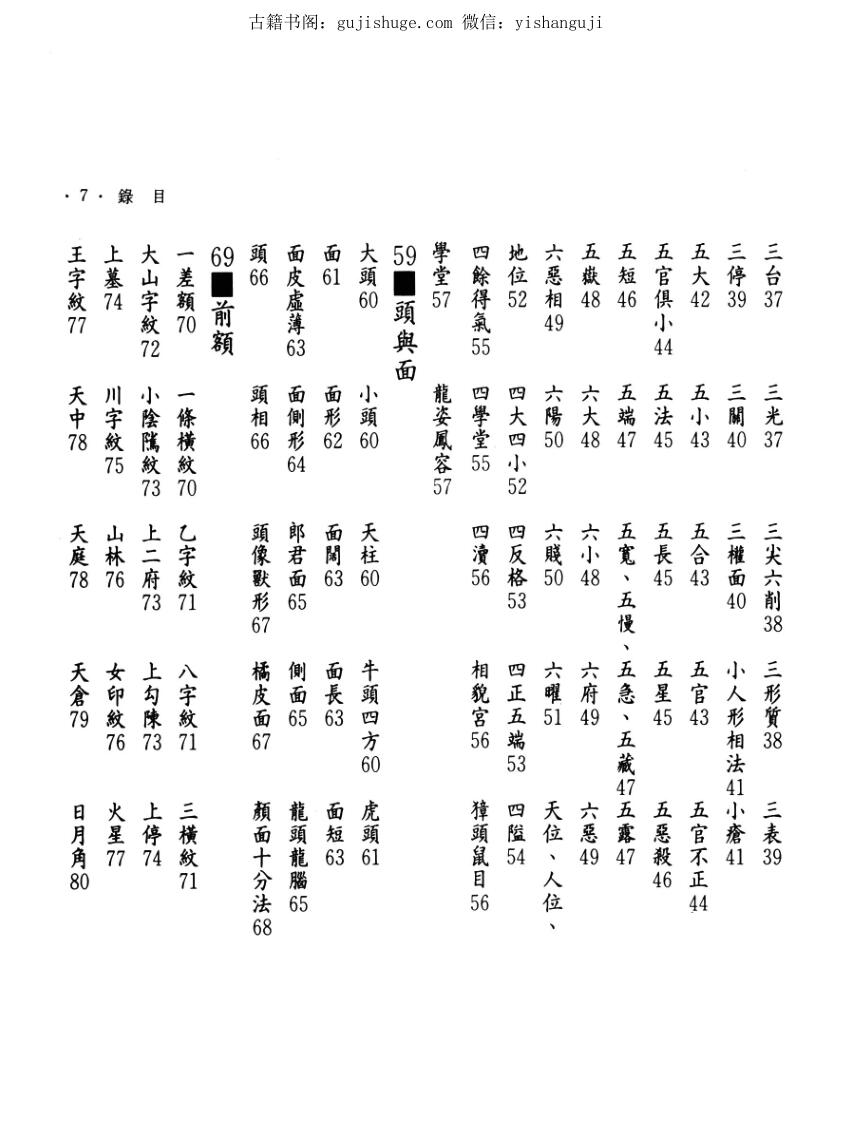 古籍书阁：gujishuge.com 微信：yishanguji
·7· 錄 目
三台37 三光37 三尖六削38 三形質38 三表39
三停39 三關40 三權面40 小人形相法41 小瘡41
五大42 五小43 五合43 五官43 五官不正44
五官俱小44 五法45 五長45 五星45 五惡殺46
五短46 五端47 五寬、五慢、五急、五藏47 五露47
五嶽48 六大48 六小48 六府49 六惡49
六惡相49 六陽50 六賤50 六曜51 天位、人位、
地位52 四大四小52 四反格53 四正五端53 四隘54
四餘得氣55 四學堂55 四瀆56 相貌宮56 獐頭鼠目56
學堂57 龍姿鳳容57
59■頭與面
大頭60 小頭60 天柱60 牛頭四方60 虎頭61
面61 面形62 面闊63 面長63 面短63
面皮虛薄63 面側形64 郎君面65 側面65 龍頭龍腦65
頭66 頭相66 頭像獸形67 橘皮面67 顏面十分法68
69■前額
一差額70 一條橫紋70 乙字紋71 八字紋71 三橫紋71
大山字紋72 小陰隲紋73 上二府73 上勾陳73 上停74
上墓74 川字紋75 山林76 女印紋76 火星77
王字紋77 天中78 天庭78 天倉79 日月角80